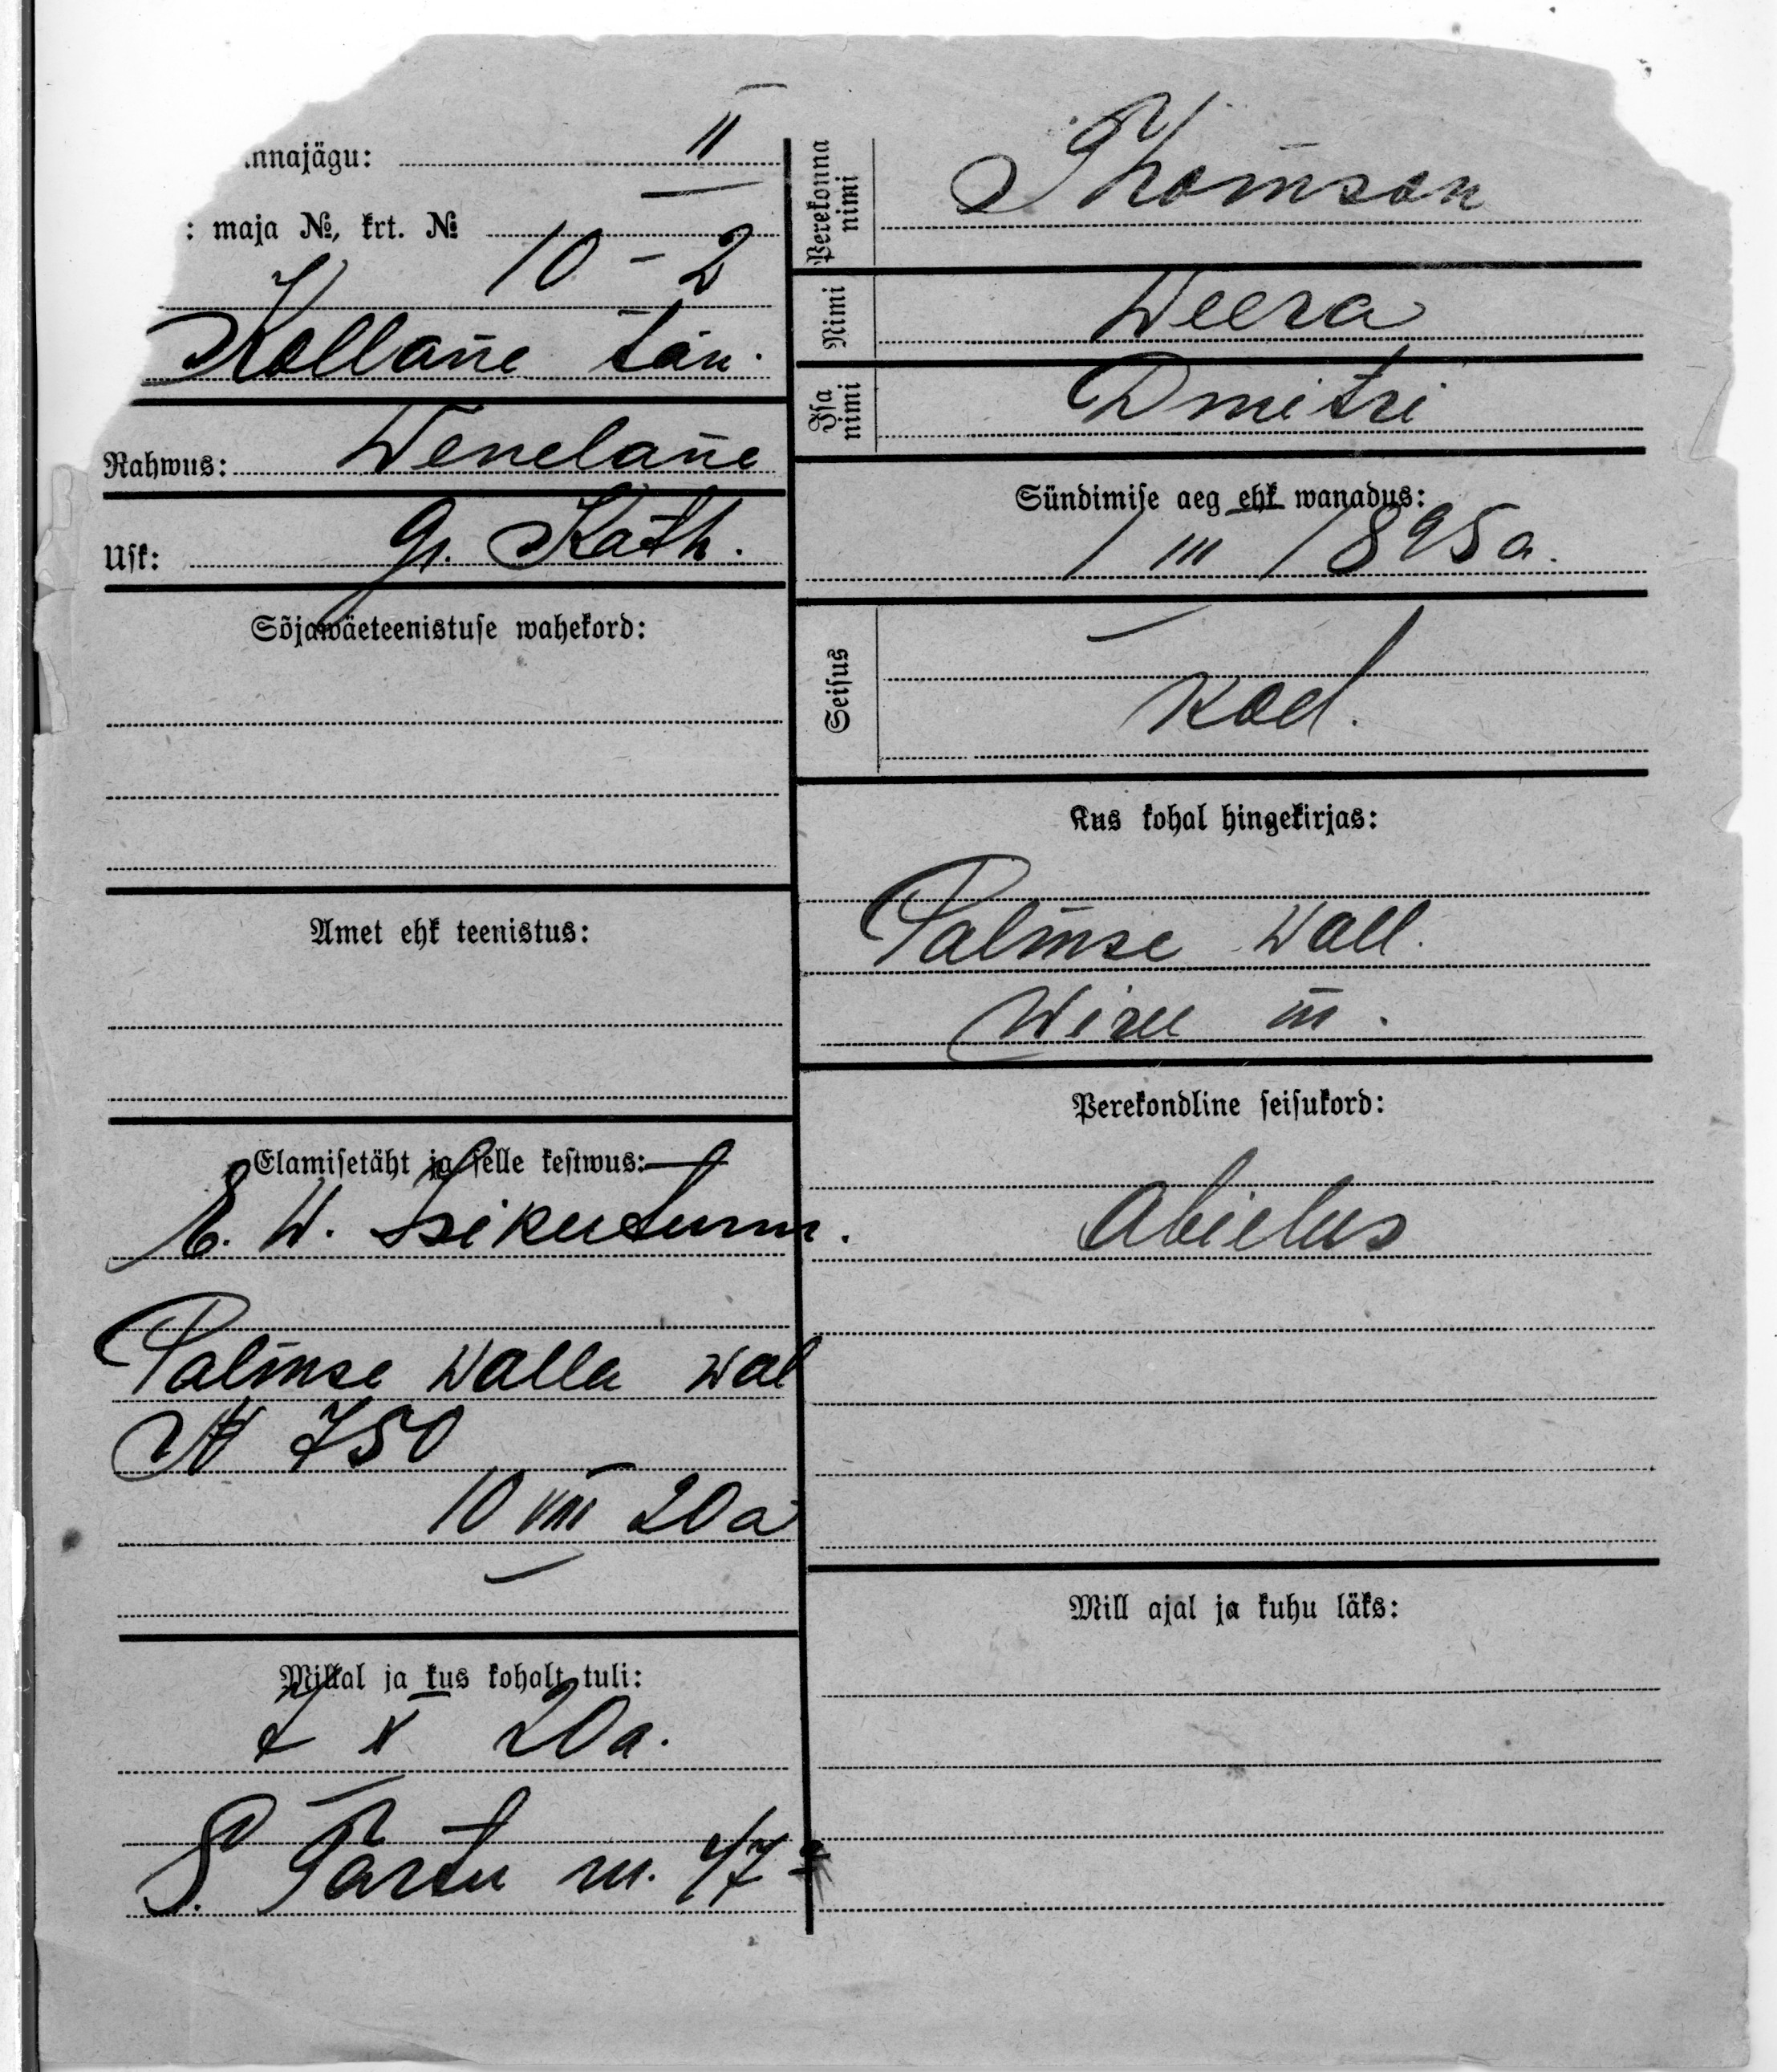 nnajägu: II
: maja №, krt. №
10 – 2
Kollane tän.
Rahwus: Wenelane
Usk: gr. Kath.
Sõjawäeteenistuse wahekord:
Amet ehk teenistus:
Elamisetäht ja selle kestwus:
E. W. isikutunn.
Palmse Walla wal
№ 750
10 VIII 20 a
Millal ja kus kohalt tuli:
7 X 20 a.
S. Tartu m. 47 a
Perekonna nimi Thomson
Nimi Weera
Isa nimi Dmitri
Sündimise aeg ehk wanadus:
1 III 1895 a.
Seisus
kod.
Kus kohal hingekirjas:
Palmse Wall.
Wiru m.
Perekondline seisukord:
Abielus
Mill ajal ja kuhu läks: